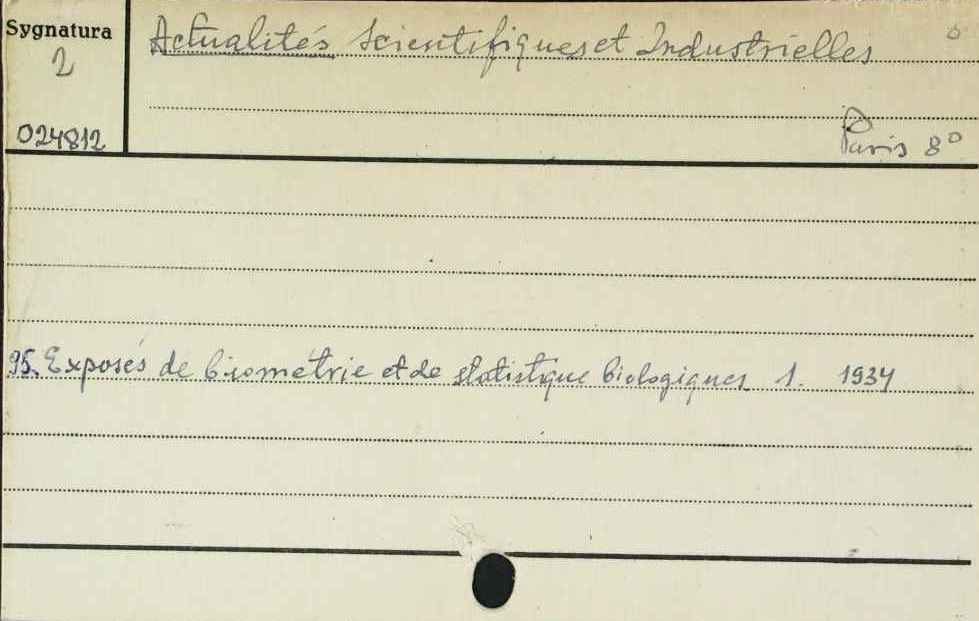 Sygnatura
2
024812
Actualités Scientifiques et Industrielles
Paris 8°
95. Exposés de biométrie et de statistique biologiques 1. 1934